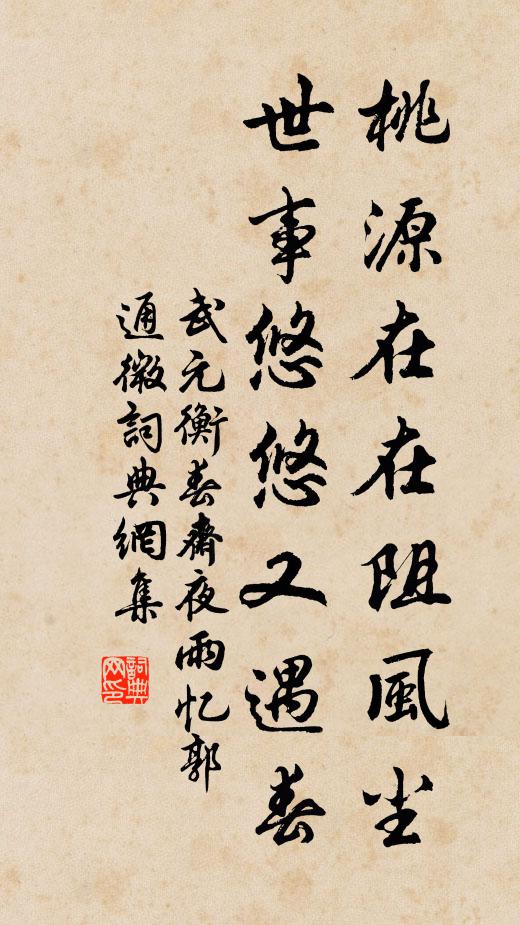 桃源在在阻風尘
世事悠悠又遇春
武元衡春齋夜雨忆郭
通微詞典網集
詞典网印